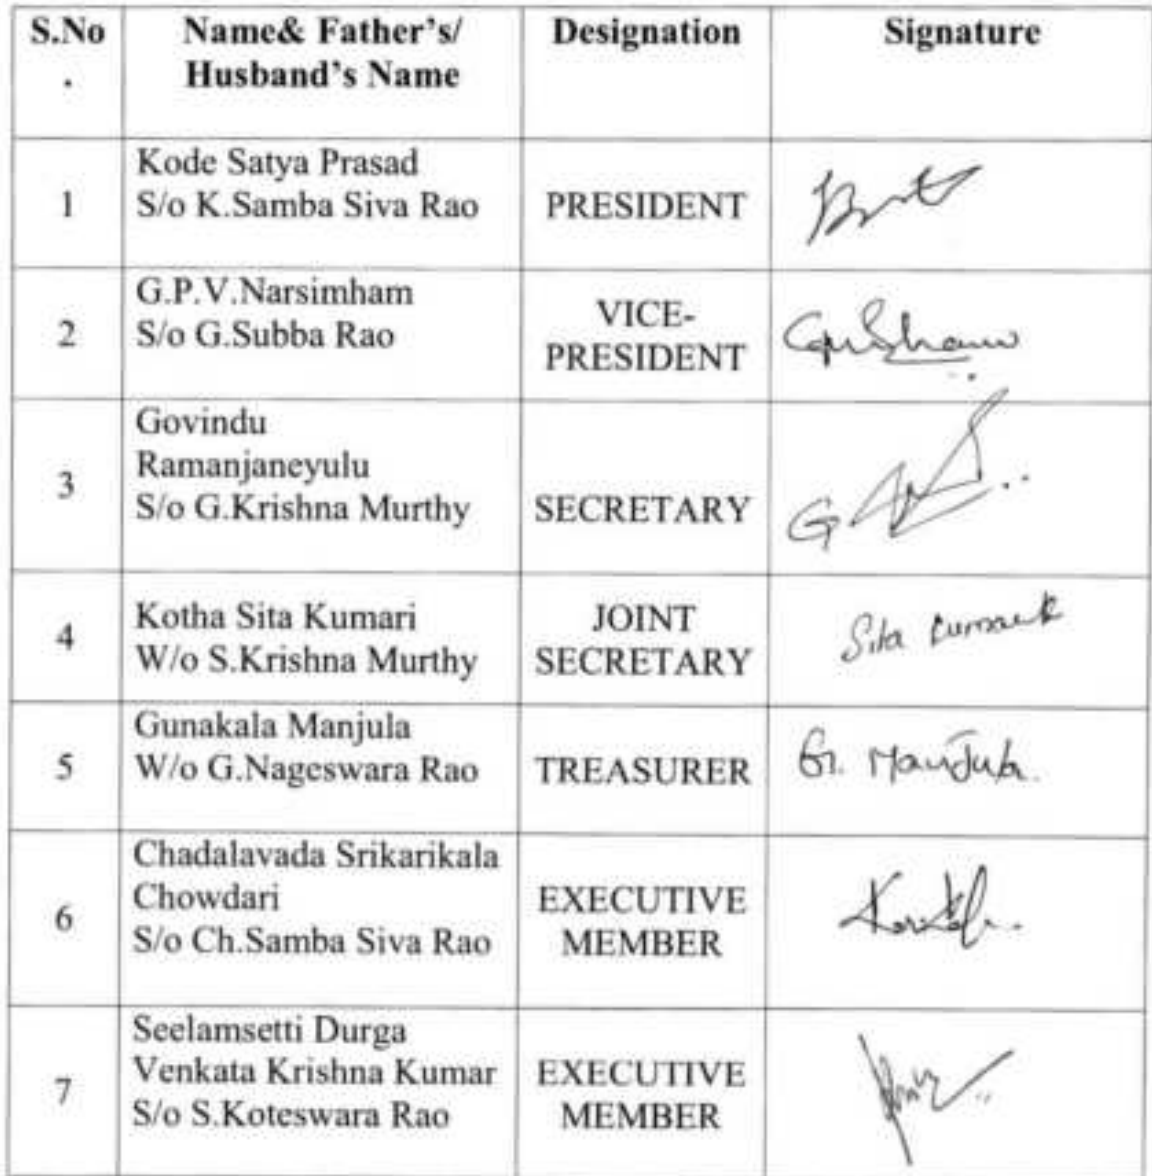 S.No
.
Name& Father's/
Husband's Name
Designation
Signature
1
Kode Satya Prasad
S/o K.Samba Siva Rao
PRESIDENT
2
G.P.V.Narsimham
S/o G.Subba Rao
VICE-
PRESIDENT
3
Govindu
Ramanjaneyulu
S/o G.Krishna Murthy
SECRETARY
G
4
Kotha Sita Kumari
W/o S.Krishna Murthy
JOINT
SECRETARY
Sita
5
Gunakala Manjula
W/o G.Nageswara Rao
TREASURER
G. Manjula.
6
Chadalavada Srikarikala
Chowdari
S/o Ch.Samba Siva Rao
EXECUTIVE
MEMBER
7
Seelamsetti Durga
Venkata Krishna Kumar
S/o S.Koteswara Rao
EXECUTIVE
MEMBER